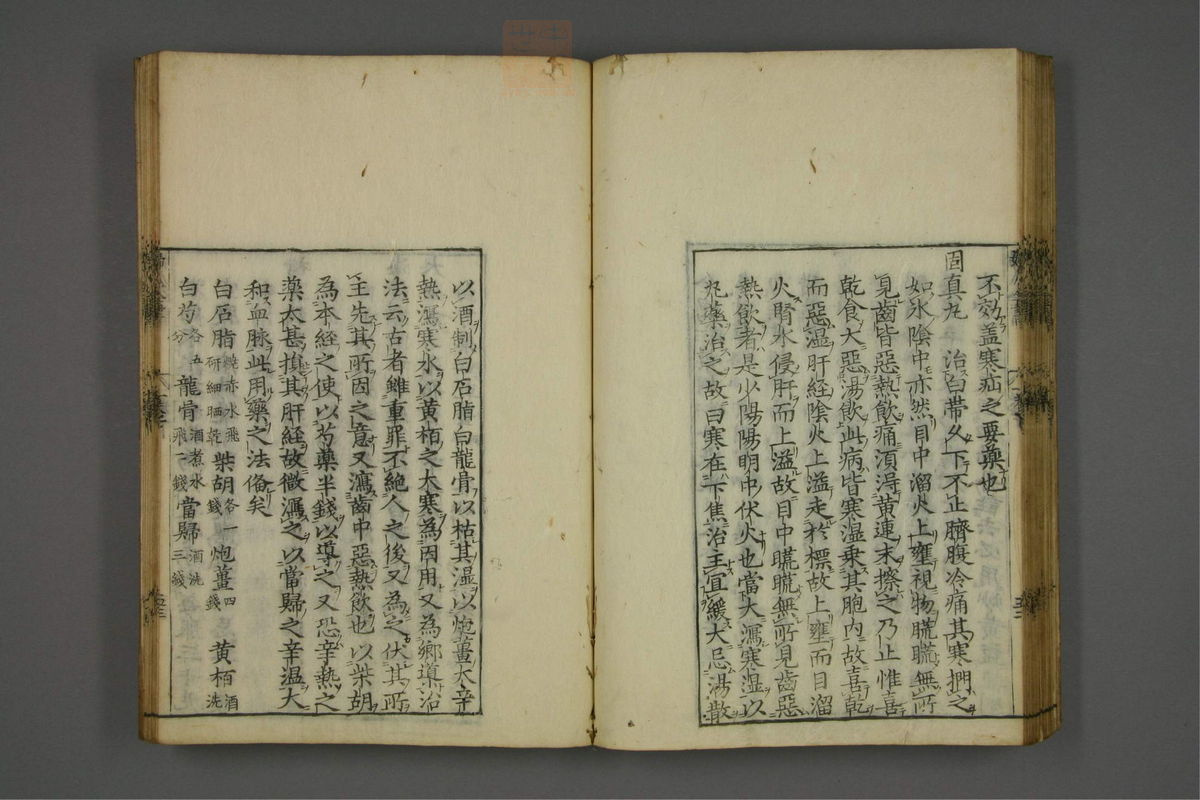 不效蓋寒疝之要藥也
固真丸　治白帶久下不止臍腹冷痛其寒捫之
如氷陰中亦然目中溜火上壅視物䀮䀮無所
見齒皆惡熱飲痛須淂黄連末擦之乃止惟喜
乾食大惡湯飲此病皆寒湿乗其胞内故喜乾
而惡湿肝経陰火上溢走於標故上壅而目溜
火腎水侵肝而上溢故目中䀮䀮無所見齒惡
熱飲者是少陽陽明中伏火也當大瀉寒湿以
丸藥治之故曰寒在下焦治主宜緩大忌湯散
以酒制白石脂白龍骨以枯其湿以炮薑大辛
熱瀉寒水以黄栢之大寒為因用又為鄉導治
法云古者雖重罪不絶人之後又為之伏其所
主先其所因之意又瀉齒中惡熱飲也以柴胡
為本経之使以芍藥半錢以導之又恐辛熱之
藥太甚損其肝経故微瀉之以當歸之辛温大
和血脉此用藥之法俻矣
白石脂燒赤水飛研細晒乾柴胡各一錢炮薑四錢黄栢酒洗
白芍各五分龍骨酒煮水飛二錢當歸酒洗三錢